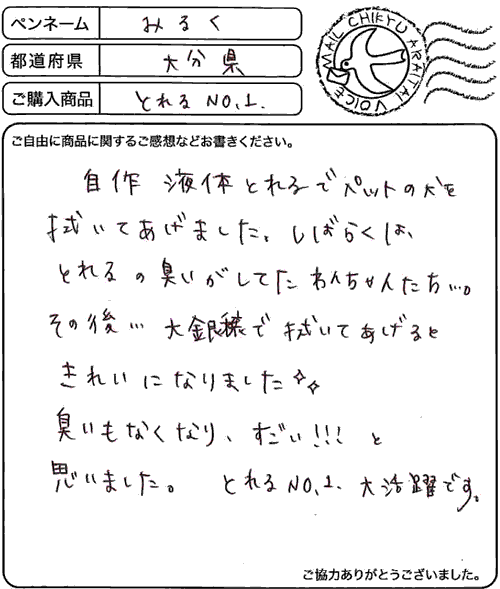 ペンネーム みるく
都道府県 大分県
ご購入商品 とれるNO.1.
MAIL CHIKYU ARAITAI VOICE
ご自由に商品に関するご感想などお書きください。
自作 液体とれるでペットの犬を
拭いてあげました。しばらくは、
とれるの臭いがしてた わんちゃんたち…。
その後… 大銀穣で拭いてあげると
きれいになりました
臭いもなくなり、すごい!!!と
思いました。 とれるNO.1. 大活躍です。
ご協力ありがとうございました。